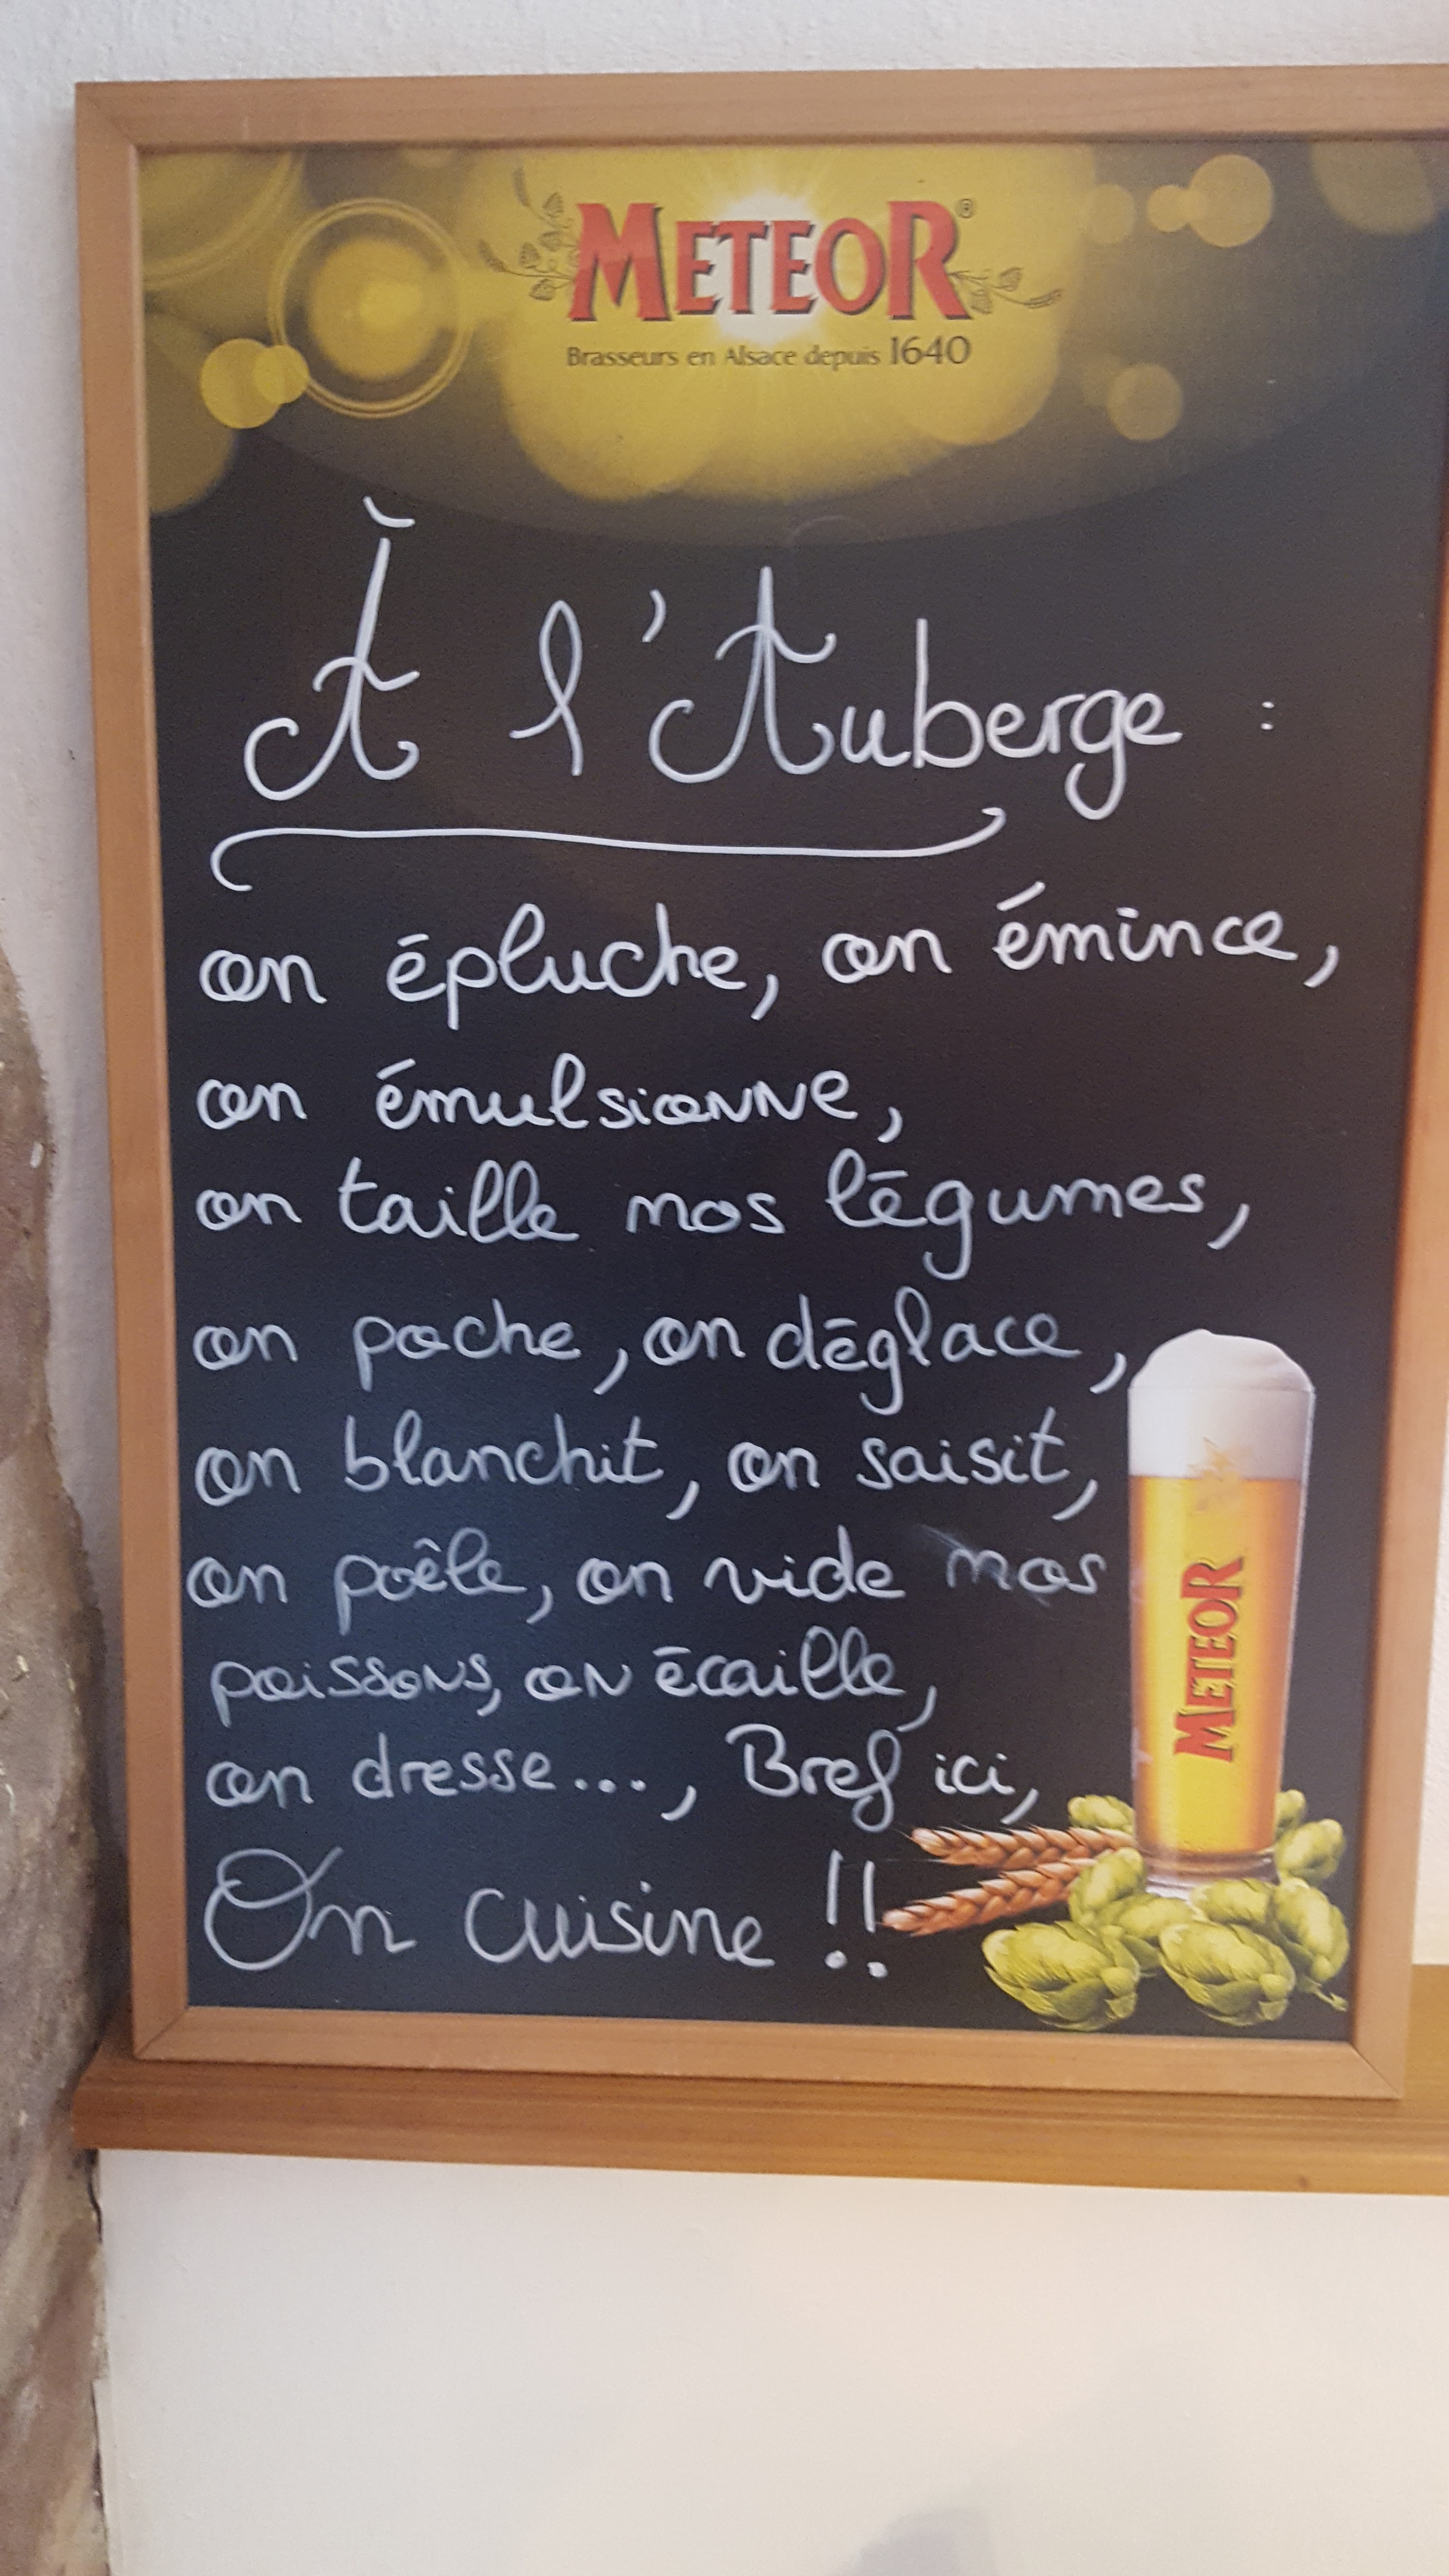 METEOR®
Brasseurs en Alsace depuis 1640
À l'Auberge :
on épluche, on émince,
on émulsionne,
on taille nos légumes,
on poche, on déglace,
on blanchit, on saisit,
on poêle, on vide nos
poissons, on écaille,
on dresse..., Bref ici,
On cuisine !!
METEOR